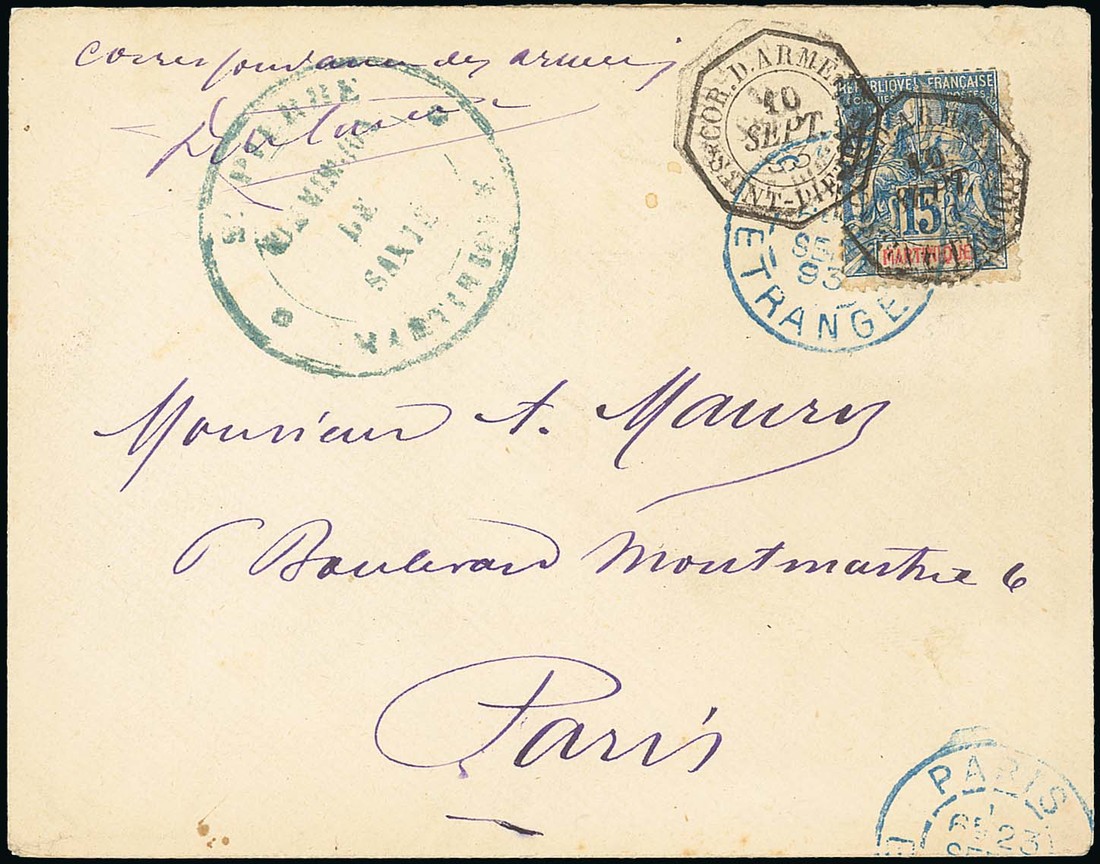 Correspondance des armées
ST PIERRE
DIVISION
DE
SANTÉ
MARTINIQUE
COR. D. ARMÉES
10
SEPT.
93
SAINT-PIERRE
RÉPUBLIQUE FRANÇAISE
COLONIES POSTES
15
MARTINIQUE
COR. D. ARMÉES
10
SEPT.
SEPT
93
ETRANGER
Monsieur A. Maury
6 Boulevard Montmartre 6
Paris
PARIS
23
SEPT